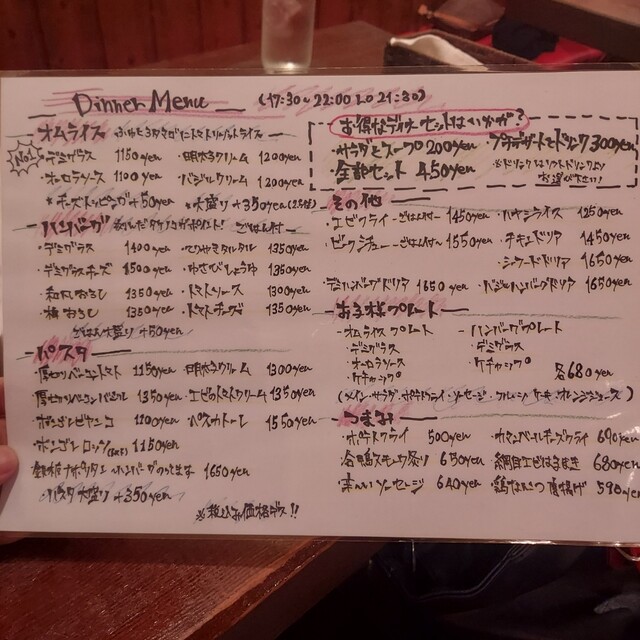 Dinner Menu (17:30~22:00 LO 21:30)
オムライス
No.1
・デミグラス 1150yen ・明太子クリーム 1200yen
・オーロラソース 1100yen ・バジルクリーム 1200yen
*チーズトッピング +50yen *大盛り +350yen
ハンバーグ ごはん付
・デミグラス 1400yen ・てりやきタルタル 1350yen
・デミグラスチーズ 1500yen ・わさびじょうゆ 1350yen
・和風おろし 1350yen ・トマトソース 1300yen
・梅おろし 1350yen ・トマトチーズ 1350yen
ごはん大盛り +50yen
パスタ
厚切りベーコントマト 1150yen 明太子クリーム 1300yen
厚切りベーコンバジル 1350yen ・エビのトマトクリーム 1350yen
ボンゴレビアンコ 1200yen ・ペスカトーレ 1550yen
ボンゴレロッソ 1150yen
鉄板ナポリタン ハンバーグのっせ 1650yen
パスタ大盛り +350yen
※税込み価格デス!!
お得なディナーセットはいかが?
・サラダとスープ 200yen ・プチデザートとドリンク 300yen
・全部セット 450yen ※ドリンクはソフトドリンクより
お選び下さい!
その他
・エビフライ ーごはん付ー 1450yen ・ハヤシライス 1250yen
・ビーフシチュー ーごはん付ー 1550yen ・チキンドリア 1450yen
・シーフードドリア 1650yen
・デミハンバーグドリア 1650yen ・バジルハンバーグドリア 1650yen
お子様プレート
・オムライスプレート ・ハンバーグプレート
・デミグラス ・デミグラス
・オーロラソース ・ケチャップ
・ケチャップ 各680yen
(メイン・サラダ・ポテトフライ・ソーセージ・フルーツ・ケーキ・オレンジジュース)
おつまみ
・ポテトフライ 500yen ・カマンベールチーズフライ 690yen
・合鴨スモーク炙り 650yen ・網目エビはるまき 680yen
・辛いソーセージ 640yen ・鶏なんこつ唐揚げ 590yen